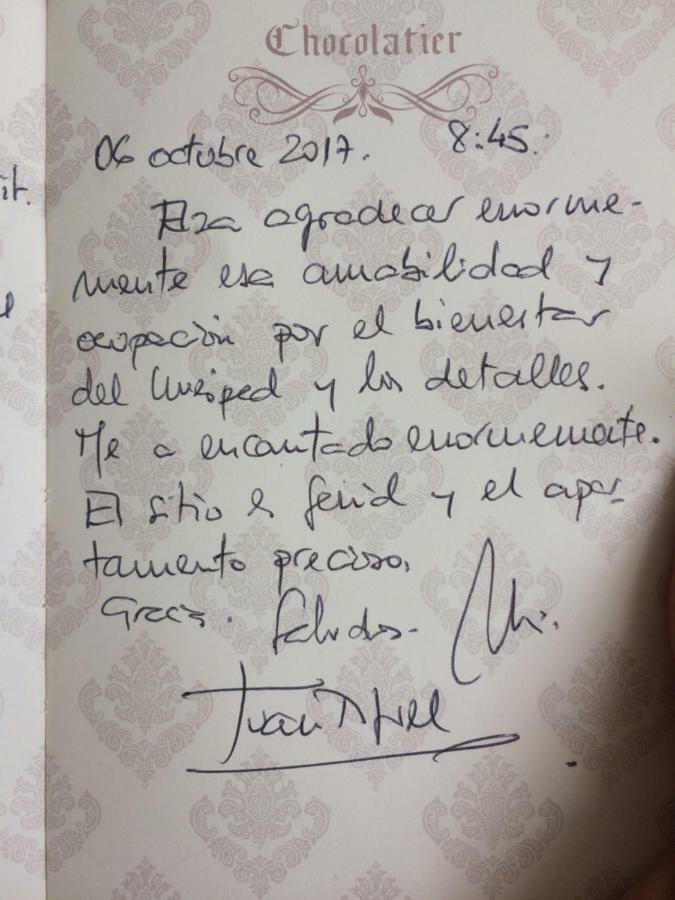 Chocolatier
06 octubre 2017. 8:45.
agradecer enorme-
mente esa amabilidad y
ocupación por el bienestar
del huésped y los detalles.
Me a encantado enormemente.
El sitio es genial y el apar-
tamento precioso.
Gracias. Saludos.
Juan
it.